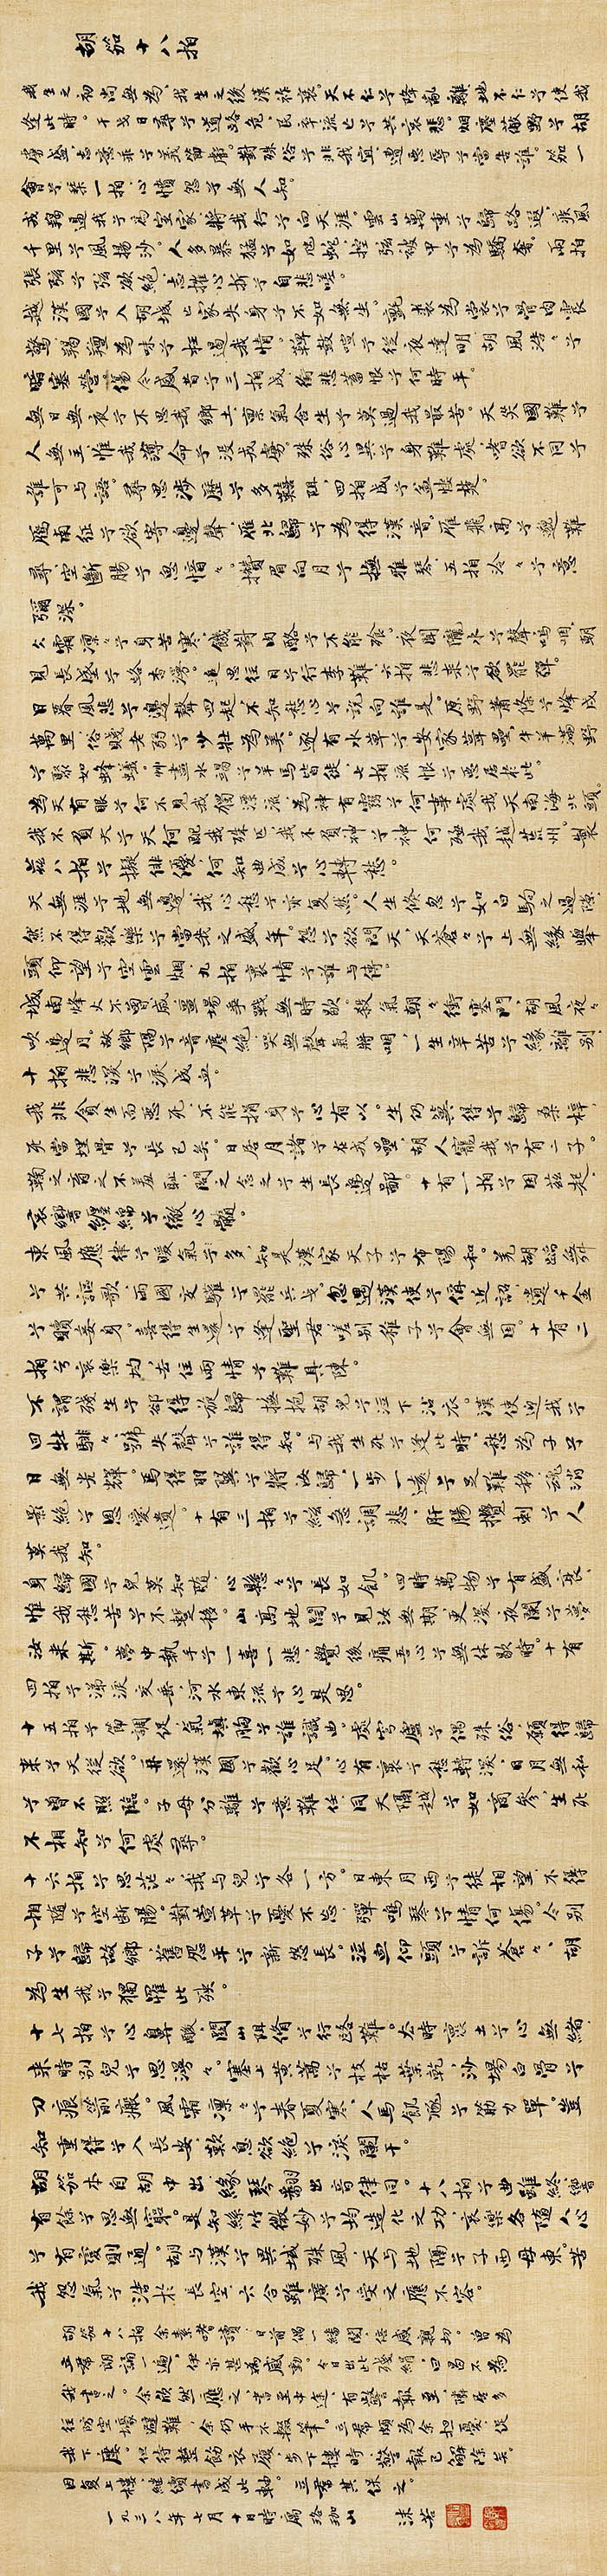 胡笳十八拍
我生之初尚無為,我生之後漢祚衰。天不仁兮降亂離,地不仁兮使我
逢此時。干戈日尋兮道路危,民卒流亡兮共哀悲。烟塵蔽野兮胡
虜盛,志意乖兮義節虧。對殊俗兮非我宜,遭惡辱兮當告誰。笳一
會兮琴一拍,心憤怨兮無人知。
戎羯逼我兮為室家,將我行兮向天涯。雲山萬重兮歸路遐,疾風
千里兮風揚沙。人多暴猛兮如虺蛇,控弦被甲兮為驕奢。兩拍
張弦兮弦欲絕,志摧心折兮自悲嗟。
越漢國兮入胡城,亡家失身兮不如無生。氈裘為裳兮骨肉震
驚,羯羶為味兮枉遏我情。鞞鼓喧兮從夜達明,胡風浩々兮
暗塞營。傷今感昔兮三拍成,銜悲蓄恨兮何時平。
無日無夜兮不思我鄉土,稟氣含生兮莫過我最苦。天災國難兮
人無主,惟我薄命兮沒戎虜。殊俗心異兮身難處,嗜欲不同兮
誰可与語。尋思涉歷兮多艱阻,四拍成兮益悽楚。
雁南征兮欲寄邊聲,雁北歸兮為得漢音。雁飛高兮邈難
尋,空斷腸兮思愔々。攢眉向月兮撫雅琴,五拍泠々兮意
彌深。
冰霜凜々兮身苦寒,饑對肉酪兮不能飡。夜聞隴水兮聲嗚咽,朝
見長城兮路杳漫。追思往日兮行李難,六拍悲來兮欲罷彈。
日暮風悲兮邊聲四起,不知愁心兮說向誰是。原野蕭條兮烽戍
萬里,俗賤老弱兮少壯為美。逐有水草兮安家葺壘,牛羊滿野
兮聚如蜂蟻。艸盡水竭兮羊馬皆徙,七拍流恨兮惡居於此。
為天有眼兮何不見我獨漂流,為神有靈兮何事處我天南海北頭。
我不負天兮天何配我殊匹,我不負神兮神何殛我越荒州。製
茲八拍兮擬俳優,何知曲成兮心轉愁。
天無涯兮地無邊,我心愁兮亦復然。人生倏忽兮如白駒之過隙,
然不得歡樂兮當我之盛年。怨兮欲問天,天蒼々兮上無緣。舉
頭仰望兮空雲烟,九拍懷情兮誰与傳。
城南烽火不曾滅,疆場爭戰無時歇。殺氣朝々衝塞門,胡風夜々
吹邊月。故鄉隔兮音塵絕,哭無聲氣將咽。一生辛苦兮緣離別,
十拍悲深兮淚成血。
我非貪生而惡死,不能捐身兮心有以。生仍冀得兮歸桑梓,
死當埋骨兮長已矣。日居月諸兮在戎壘,胡人寵我兮有二子。
鞠之育之不羞恥,閔之念之兮生長邊鄙。十有一拍兮因茲起,
哀響纏綿兮徹心髓。
東風應律兮暖氣兮多,知是漢家天子兮布陽和。羌胡蹈舞
兮共謳歌,兩國交驩兮罷兵戈。忽遇漢使兮稱近詔,遺千金
兮贖妾身。喜得生還兮逢聖君,嗟別稚子兮會無因。十有二
拍兮哀樂均,去住兩情兮難具陳。
不謂殘生兮卻得旋歸,撫抱胡兒兮泣下沾衣。漢使迎我兮
四牡騑々,號失聲兮誰得知。与我生死兮逢此時,愁為子兮
日無光輝。焉得羽翼兮將汝歸,一步一遠兮足難移。魂消
影絕兮恩愛遺。十有三拍兮絃急調悲,肝腸攪刺兮人
莫我知。
身歸國兮兒莫知隨,心懸々兮長如飢。四時萬物兮有盛衰,
惟我愁苦兮不暫移。山高地闊兮見汝無期,更深夜闌兮夢
汝來斯。夢中執手兮一喜一悲,覺後痛吾心兮無休歇時。十有
四拍兮涕淚交垂,河水東流兮心是思。
十五拍兮節調促,氣填胸兮誰識曲。處穹廬兮偶殊俗,願得歸
來兮天從欲。再還漢國兮歡心足,心有懷兮愁轉深。日月無私
兮曾不照臨。子母分離兮意難任,同天隔越兮如商參,生死
不相知兮何處尋。
十六拍兮思茫々,我与兒兮各一方。日東月西兮徒相望,不得
相隨兮空斷腸。對萱草兮憂不忘,彈鳴琴兮情何傷。今別
子兮歸故鄉,舊怨平兮新怨長。泣血仰頭兮訴蒼々,胡
為生我兮獨罹此殃。
十七拍兮心鼻酸,關山阻脩兮行路難。去時懷土兮心無緒,
來時別兒兮思漫々。塞上黃蒿兮枝枯葉乾,沙場白骨兮
刀痕箭瘢。風霜凜々兮春夏寒,人馬飢豗兮筋力單。豈
知重得兮入長安,歎息欲絕兮淚闌干。
胡笳本自胡中出,緣琴翻出音律同。十八拍兮曲雖終,響
有餘兮思無窮。是知絲竹微妙兮均造化之功,哀樂各隨人心
兮有變則通。胡与漢兮異域殊風,天与地隔兮子西母東。苦
我怨氣兮浩於長空,六合雖廣兮受之應不容。
胡笳十八拍余素嗜讀,日前偶一繙閱,倍感親切。曾為
立羣朗誦一遍,伊亦甚為感動。今日出此殘絹,曰曷不為
我書之。余欣然應之,書至中途,有警報至,鄰居多
往防空壕避難,余仍手不輟筆。立羣頗為余担憂,促
我下樓。但待整飭衣履,步下樓時,警報已解除矣。
因复上樓,繼續書成此軸。立羣其保之。
一九三八年七月十日時寓珞珈山 沫若